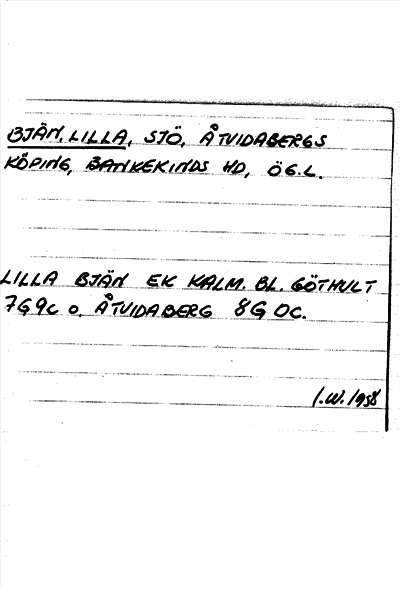 BJÄN, LILLA, SJÖ, ÅTVIDABERGS
KÖPING, BANKEKINDS HD, ÖG.L.
LILLA BJÄN EK KALM. BL. GÖTHULT
7G9c o. ÅTVIDABERG 8G 0c.
I.W. 1958